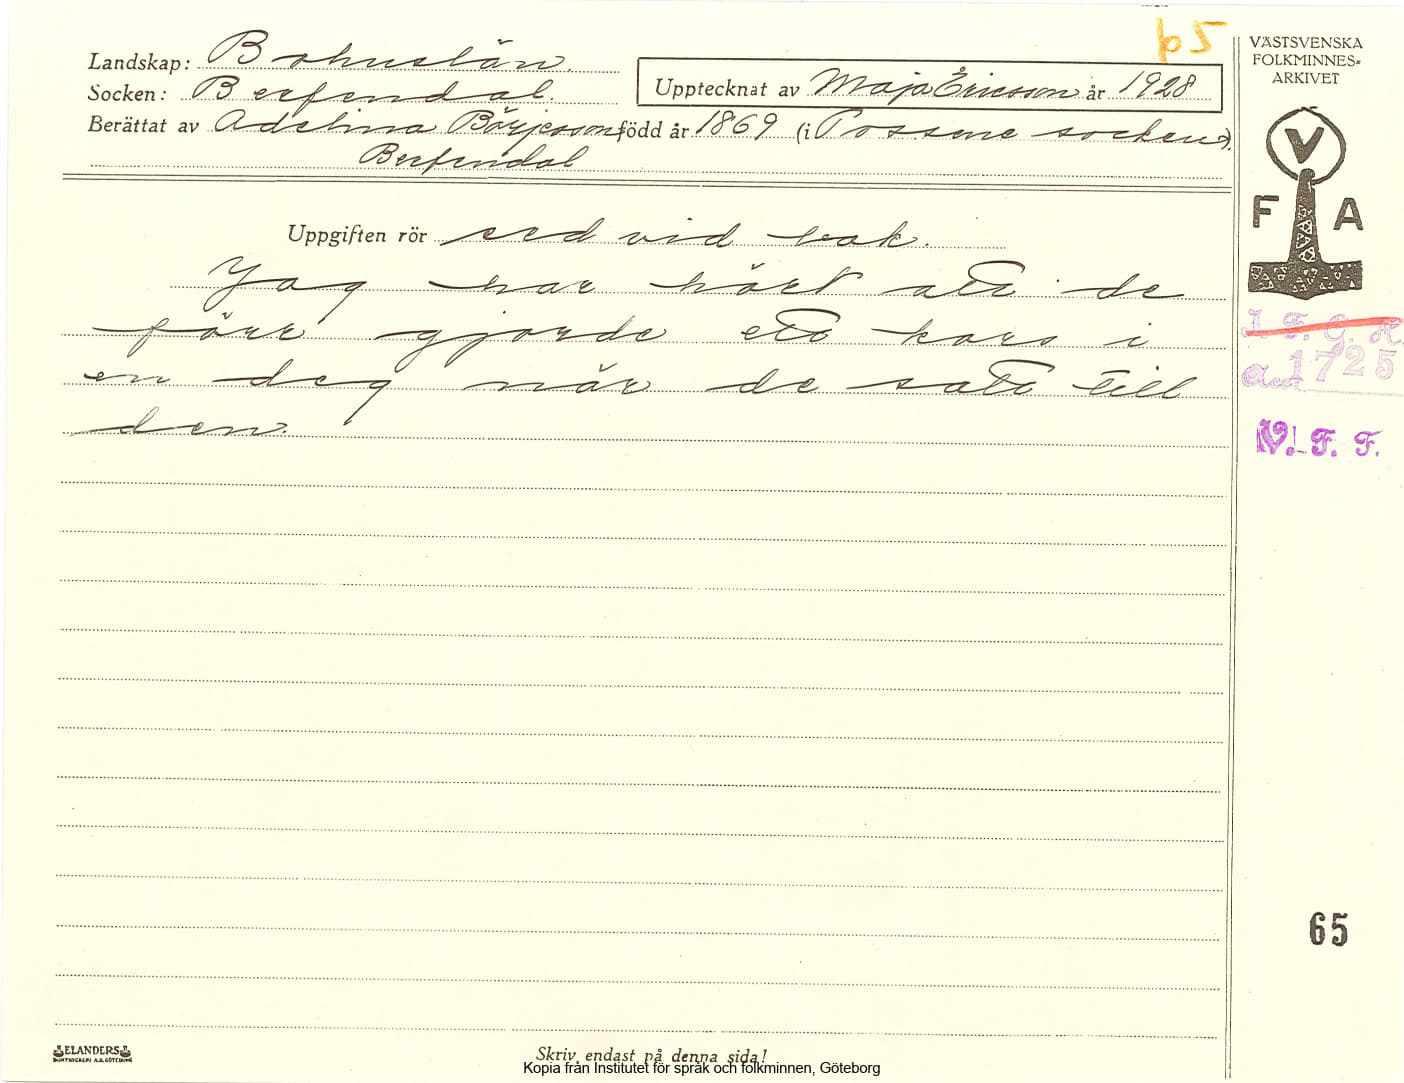 65
Landskap: Bohuslän.
Socken: Berfendal.
Upptecknat av Maja Ericsson år 1928
Berättat av Adelina Börjesson född år 1869 (i Tossene socken).
Berfendal
Uppgiften rör sed vid bak.
Jag har hört att de
förr gjorde ett kors i
en deg när de satt till
den.
VÄSTSVENSKA
FOLKMINNES-
ARKIVET
V
F A
I. F. G. H.
Acc. 1725
V. F. F.
65
ELANDERS
BOKTRYCKERI A.B. GÖTEBORG
Skriv endast på denna sida!
Kopia från Institutet för språk och folkminnen, Göteborg